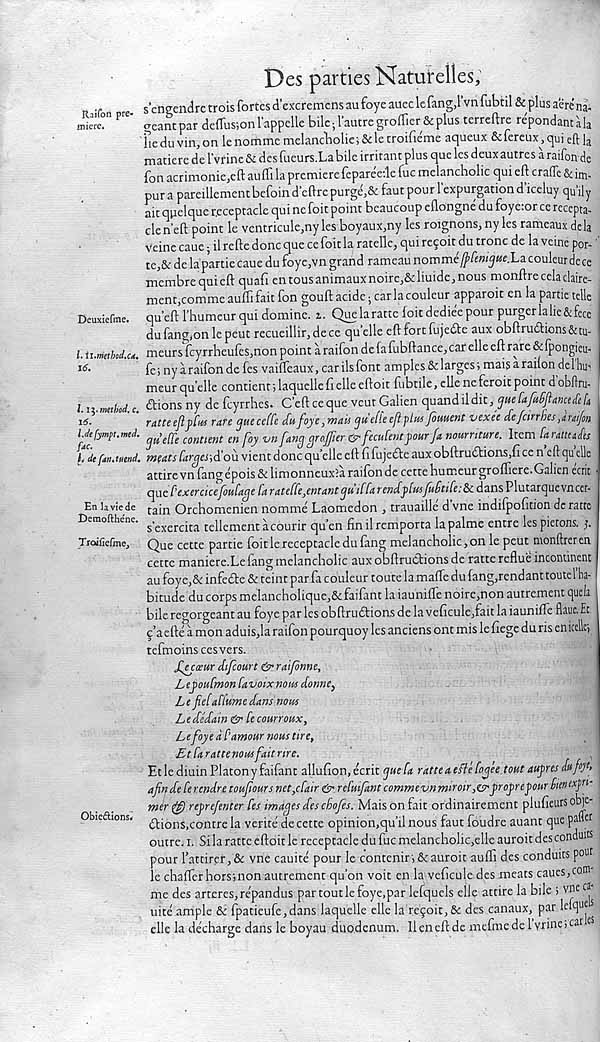 Des parties Naturelles,
Raiſon pre-
miere.
s'engendre trois ſortes d'excremens au foye auec le ſang, l'vn ſubtil & plus aëré na-
geant par deſſus; on l'appelle bile; l'autre groſſier & plus terreſtre répondant à la
lie du vin, on le nomme melancholic; & le troiſiéme aqueux & ſereux, qui eſt la
matiere de l'vrine & des ſueurs. La bile irritant plus que les deux autres à raiſon de
ſon acrimonie, eſt auſſi la premiere ſeparée: le ſuc melancholic qui eſt craſſe & im-
pur a pareillement beſoin d'eſtre purgé, & faut pour l'expurgation d'iceluy qu'il y
ait quelque receptacle qui ne ſoit point beaucoup eſlongné du foye: or ce recepta-
cle n'eſt point le ventricule, ny les boyaux, ny les roignons, ny les rameaux de la
veine caue; il reſte donc que ce ſoit la ratelle, qui reçoit du tronc de la veine por-
te, & de la partie caue du foye, vn grand rameau nommé ſplenique. La couleur de ce
membre qui eſt quaſi en tous animaux noire, & liuide, nous monſtre cela claire-
ment, comme auſſi fait ſon gouſt acide; car la couleur apparoit en la partie telle
Deuxieſme.
qu'eſt l'humeur qui domine. 2. Que la ratte ſoit dediée pour purger la lie & fece
du ſang, on le peut recueillir, de ce qu'elle eſt fort ſujecte aux obſtructions & tu-
l. 11. method. ca.
16.
meurs ſcyrrheuſes, non point à raiſon de ſa ſubſtance, car elle eſt rare & ſpongieu-
ſe; ny à raiſon de ſes vaiſſeaux, car ils ſont amples & larges; mais à raiſon de l'hu-
meur qu'elle contient; laquelle ſi elle eſtoit ſubtile, elle ne feroit point d'obſtru-
l. 13. method. c.
16.
ctions ny de ſcyrrhes. C'eſt ce que veut Galien quand il dit, que la ſubſtance de la
ratte eſt plus rare que celle du foye, mais qu'elle eſt plus ſouuent vexée de ſcirrhes, à raiſon
l. de ſympt. med.
fac.
qu'elle contient en ſoy vn ſang groſſier & feculent pour ſa nourriture. Item la ratte a des
l. de ſan. tuend.
meats larges; d'où vient donc qu'elle eſt ſi ſujecte aux obſtructions, ſi ce n'eſt qu'elle
attire vn ſang épois & limonneux? à raiſon de cette humeur groſſiere. Galien écrit
que l'exercice ſoulage la ratelle, entant qu'il la rend plus ſubtile: & dans Plutarque vn cer-
En la vie de
Demoſthéne.
tain Orchomenien nommé Laomedon, trauaillé d'vne indiſpoſition de ratte
s'exercita tellement à courir qu'en fin il remporta la palme entre les pietons. 3.
Troiſieſme,
Que cette partie ſoit le receptacle du ſang melancholic, on le peut monſtrer en
cette maniere. Le ſang melancholic aux obſtructions de ratte refluë incontinent
au foye, & infecte & teint par ſa couleur toute la maſſe du ſang, rendant toute l'ha-
bitude du corps melancholique, & faiſant la iauniſſe noire, non autrement que la
bile regorgeant au foye par les obſtructions de la veſicule, fait la iauniſſe flaue. Et
ç'a eſté à mon aduis, la raiſon pourquoy les anciens ont mis le ſiege du ris en icelle;
teſmoins ces vers.
Le cœur diſcourt & raiſonne,
Le poulmon la voix nous donne,
Le fiel allume dans nous
Le dédain & le courroux,
Le foye à l'amour nous tire,
Et la ratte nous fait rire.
Et le diuin Platon y faiſant alluſion, écrit que la ratte a eſté logée tout aupres du foye,
afin de le rendre touſiours net, clair & reluiſant comme vn miroir, & propre pour bien expri-
mer & repreſenter les images des choſes. Mais on fait ordinairement pluſieurs obje-
Obiections.
ctions, contre la verité de cette opinion, qu'il nous faut ſoudre auant que paſſer
outre. 1. Si la ratte eſtoit le receptacle du ſuc melancholic, elle auroit des conduits
pour l'attirer, & vne cauité pour le contenir; & auroit auſſi des conduits pour
le chaſſer hors; non autrement qu'on voit en la veſicule des meats caues, com-
me des arteres, répandus par tout le foye, par leſquels elle attire la bile; vne ca-
uité ample & ſpatieuſe, dans laquelle elle la reçoit, & des canaux, par leſquels
elle la décharge dans le boyau duodenum. Il en eſt de meſme de l'vrine; car les